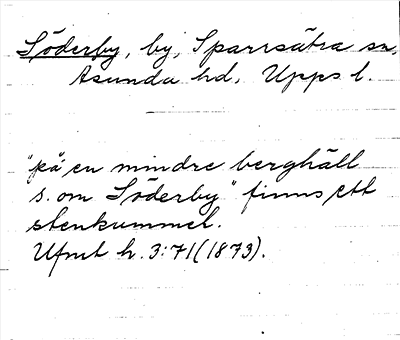 Söderby, by, Sparrsätra sn,
Asunda hd, Upps l.
"på en mindre berghäll
s. om Söderby" finns ett
stenkummel.
Ufmt h. 3:71 (1873).